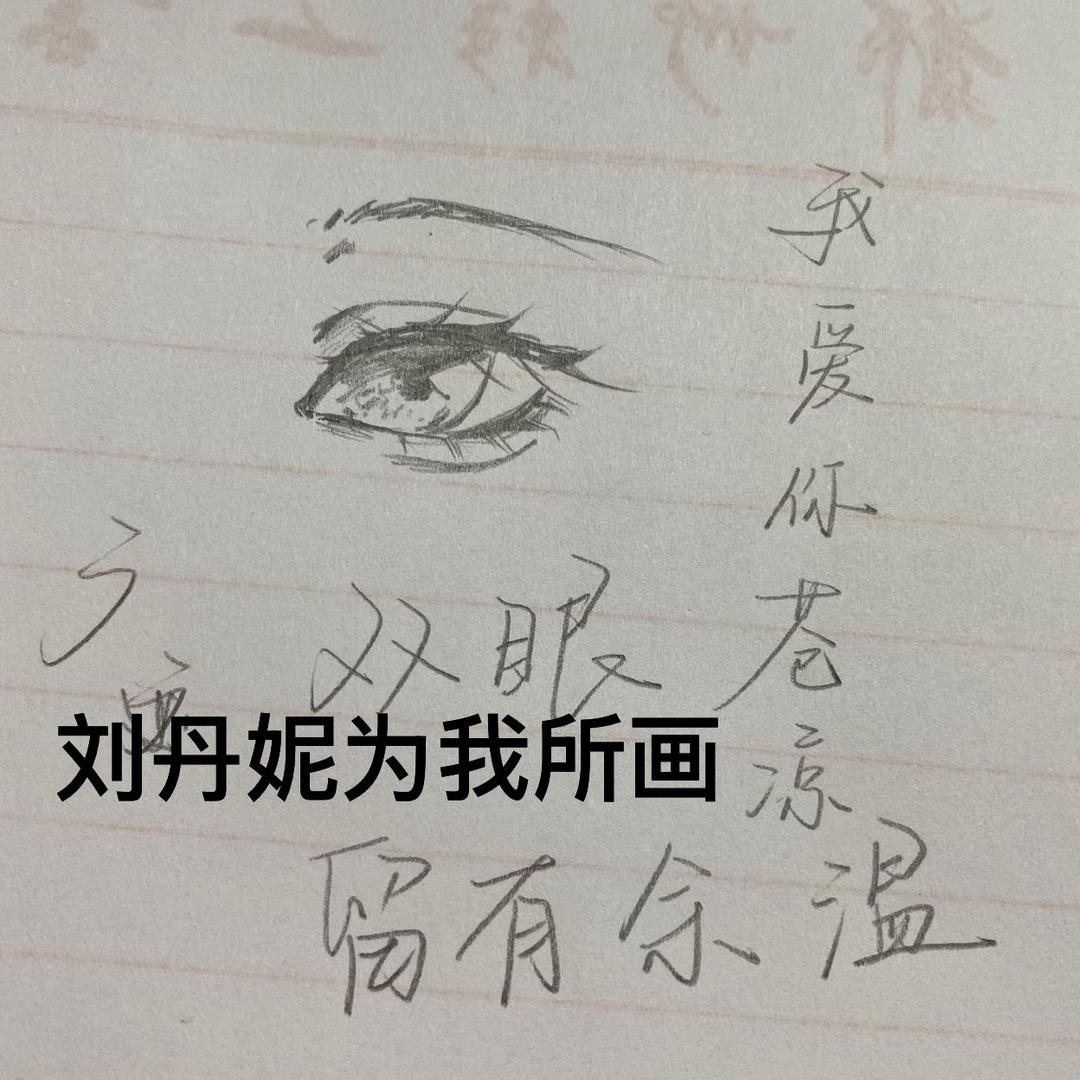 我爱你苍凉
双眼
刘丹妮为我所画
留有余温